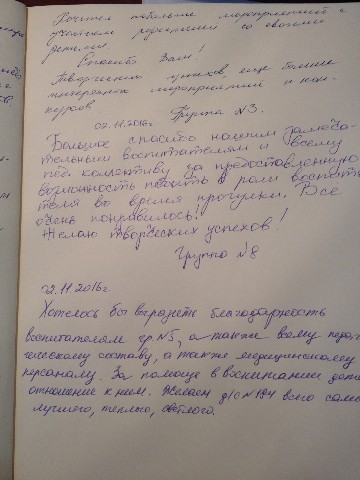 Хочется побольше мероприятий с
участием родителей со своими
детьми
Спасибо Вам!
Творческих успехов, еще больше
интересных мероприятий и кон-
курсов
Группа №3.
02.11.2016г
Большое спасибо нашим замеча-
тельным воспитателям и всему
пед. коллективу за предоставленную
возможность побыть в роли воспита
теля во время прогулки. Всё
очень понравилось!
Желаю творческих успехов!
Группа №8
22.11.2016г
Хотелось бы выразить благодарность
воспитателям гр. №5, а также всему педаго
гическому составу, а также медицинскому
персоналу. За помощь в воспитании детей
отношение к ним. Желаем д/с №184 всего само
лучшего, теплого, светлого.